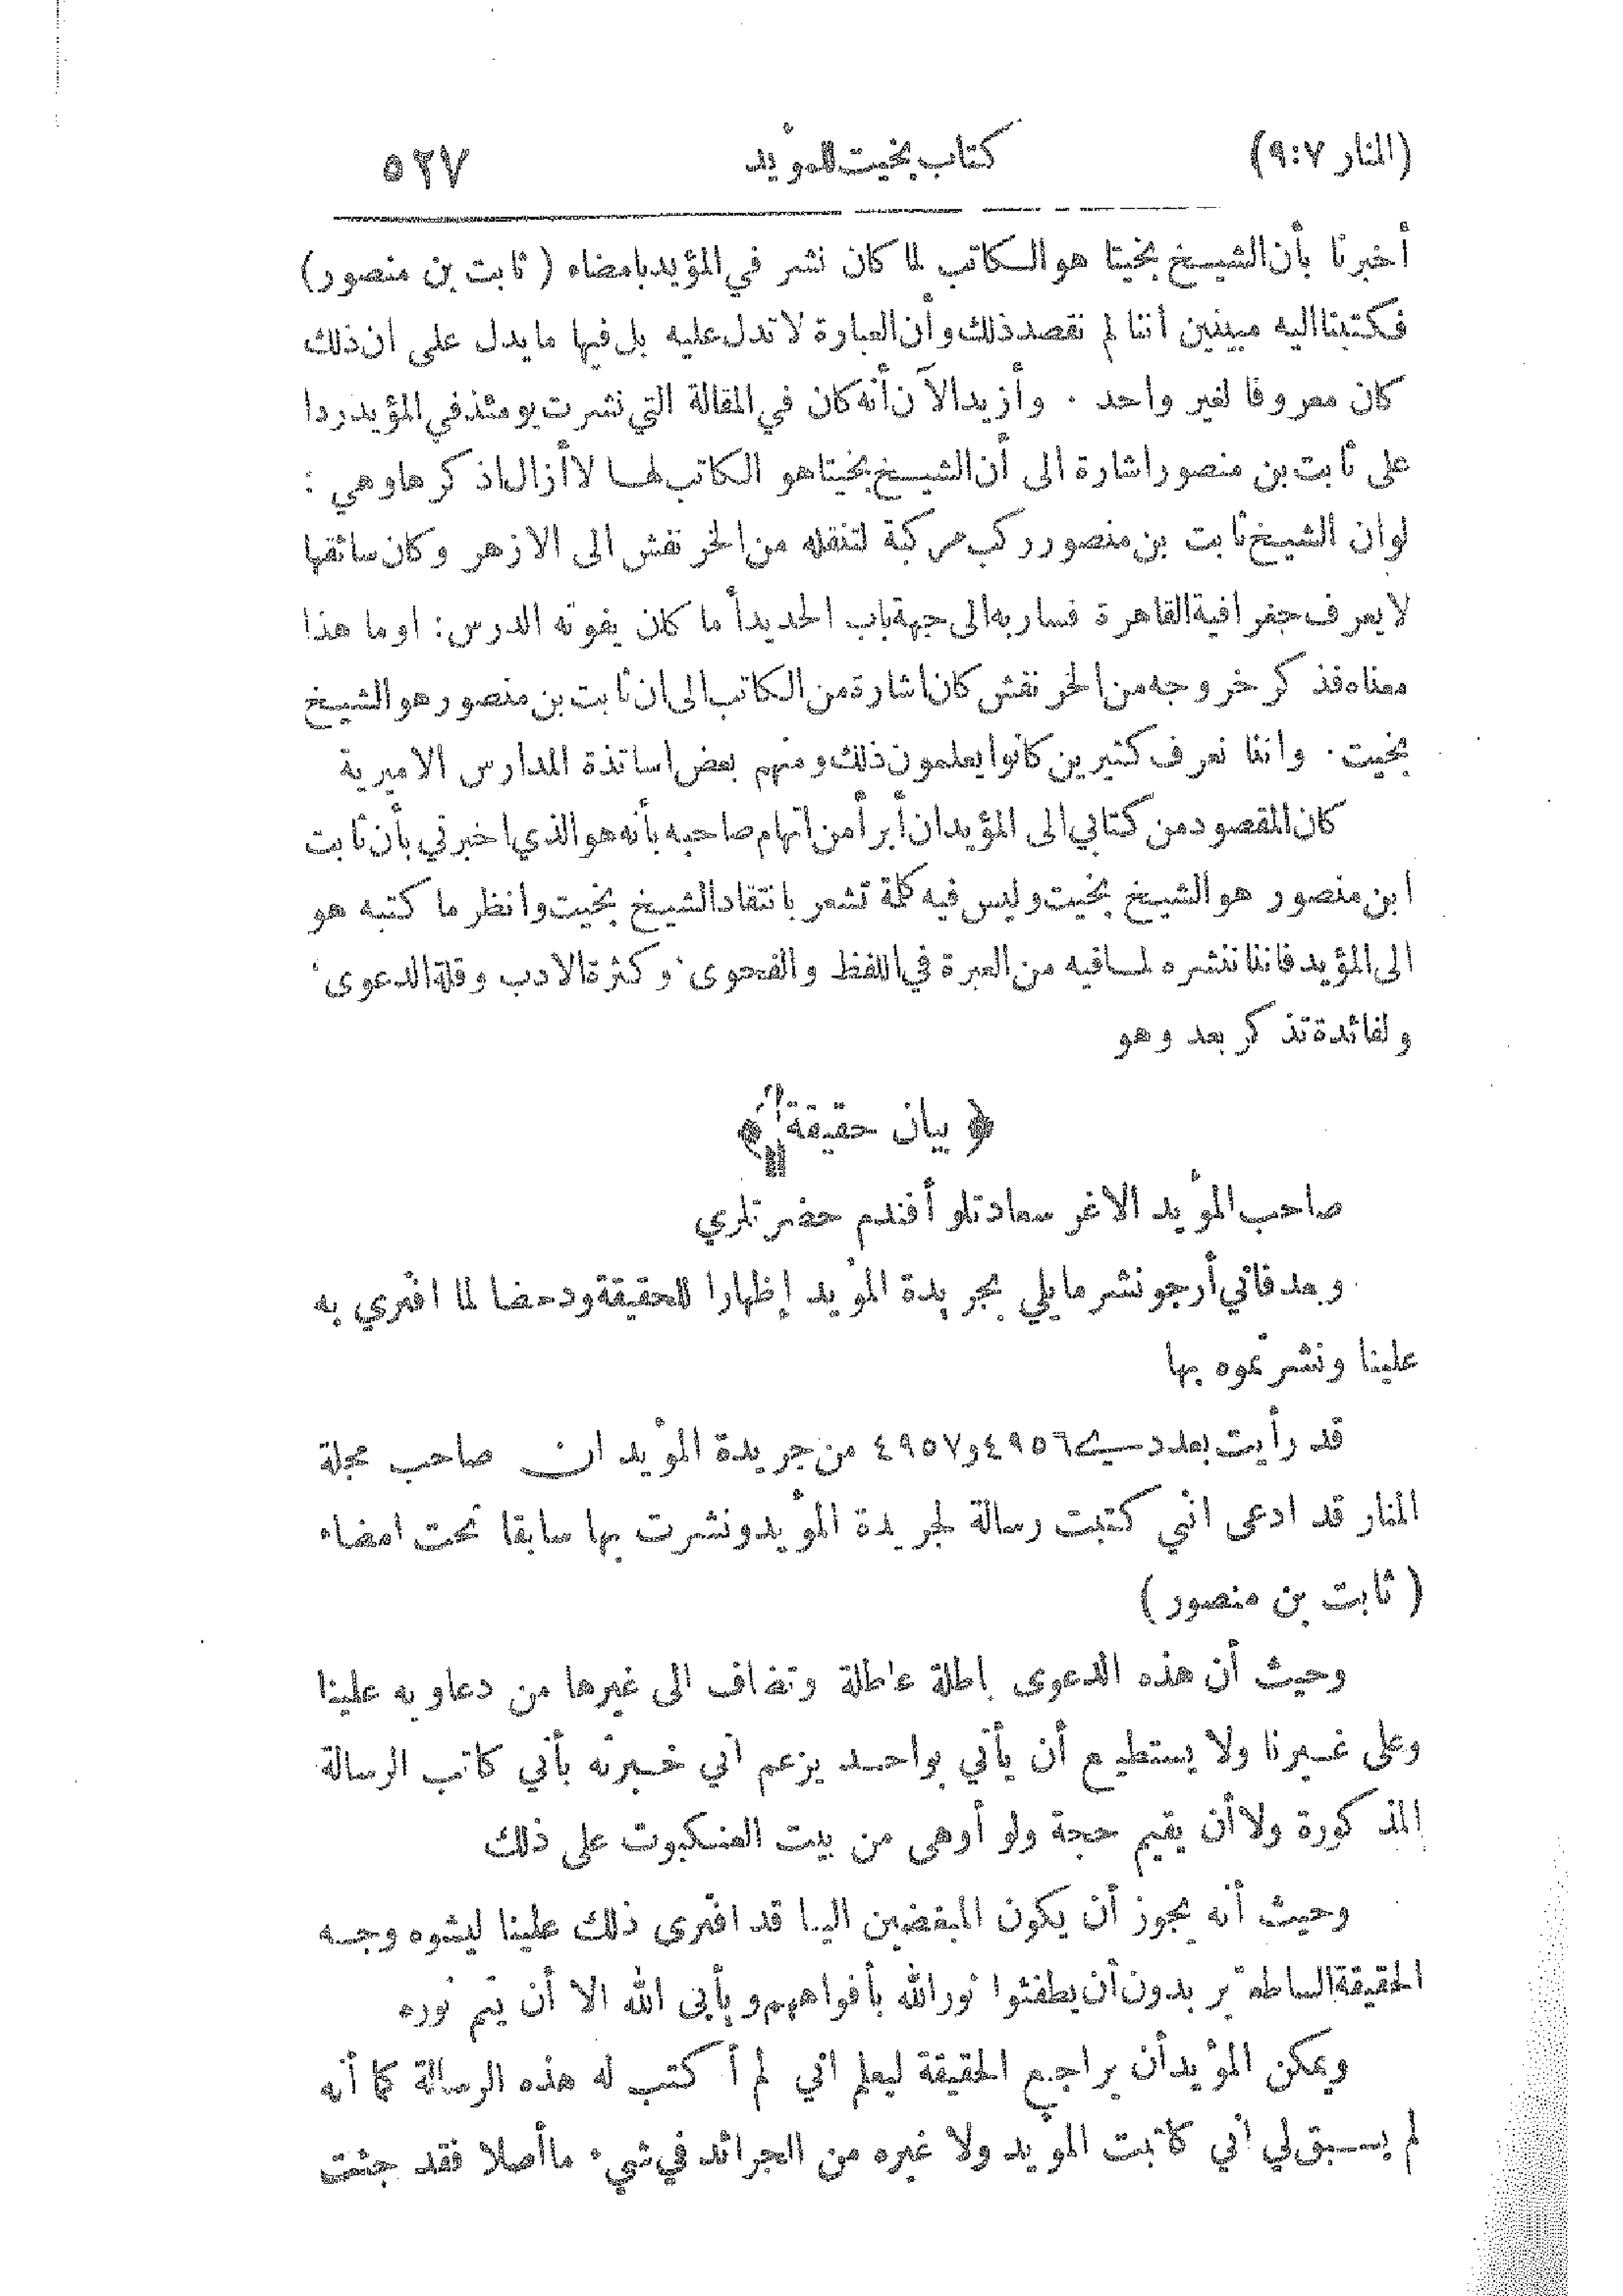 (المنار ٩:٧) كتاب بخيت للمؤيد ٥٢٧
أخبرنا بأن الشيخ بخيتا هو الكاتب لما كان نشر في المؤيد بامضاء ( ثابت بن منصور)
فكتبنا اليه مبينين اننا لم نقصد ذلك وأن العبارة لا تدل عليه بل فيها ما يدل على ان ذلك
كان معروفا لغير واحد . وأزيد الآن أنه كان في المقالة التي نشرت يومئذ في المؤيد ردا
على ثابت بن منصور اشارة الى أن الشيخ بخيتا هو الكاتب لها لا أزال اذكرها وهي :
لو ان الشيخ ثابت بن منصور ركب مركبة لتنقله من الخرنفش الى الازهر وكان سائقها
لا يعرف جغرافية القاهرة فسار به الى جهة باب الحديد أما كان يفوته الدرس: او ما هذا
معناه فذكر خروجه من الخرنفش كان اشارة من الكاتب الى ان ثابت بن منصور هو الشيخ
بخيت . واننا نعرف كثيرين كانوا يعلمون ذلك ومنهم بعض اساتذة المدارس الاميرية
كان المقصود من كتابي الى المؤيد ان أبرأ من اتهام صاحبه بأنه هو الذي اخبرني بأن ثابت
ابن منصور هو الشيخ بخيت وليس فيه كلمة تشعر بانتقاد الشيخ بخيت وانظر ما كتبه هو
الى المؤيد فاننا ننشره لما فيه من العبرة في اللفظ والفحوى ، وكثرة الادب وقلة الدعوى ،
ولفائدة تذكر بعد وهو
﴿ بيان حقيقة ﴾
صاحب المؤيد الاغر سعادتلو أفندم حضرتلري
وبعد فاني أرجو نشر ما يلي بجريدة المؤيد إظهارا للحقيقة ودحضا لما افتري به
علينا ونشرتموه بها
قد رأيت بعددي ٤٩٥٦ و٤٩٥٧ من جريدة المؤيد ان صاحب مجلة
المنار قد ادعى اني كتبت رسالة لجريدة المؤيد ونشرت بها سابقا تحت امضاء
( ثابت بن منصور )
وحيث أن هذه الدعوى باطلة عاطلة وتضاف الى غيرها من دعاويه علينا
وعلى غيرنا ولا يستطيع أن يأتي بواحد يزعم اني خبرته بأني كاتب الرسالة
المذكورة ولا أن يقيم حجة ولو أوهى من بيت العنكبوت على ذلك
وحيث أنه يجوز أن يكون المبغضين الينا قد افترى ذلك علينا ليشوه وجه
الحقيقة الساطعة يريدون أن يطفئوا نور الله بأفواههم ويأبى الله الا أن يتم نوره
ويمكن المؤيد أن يراجع الحقيقة ليعلم اني لم أكتب له هذه الرسالة كما أنه
لم يسبق لي اني كاتبت المؤيد ولا غيره من الجرائد في شيء ما أصلا فقد جئت